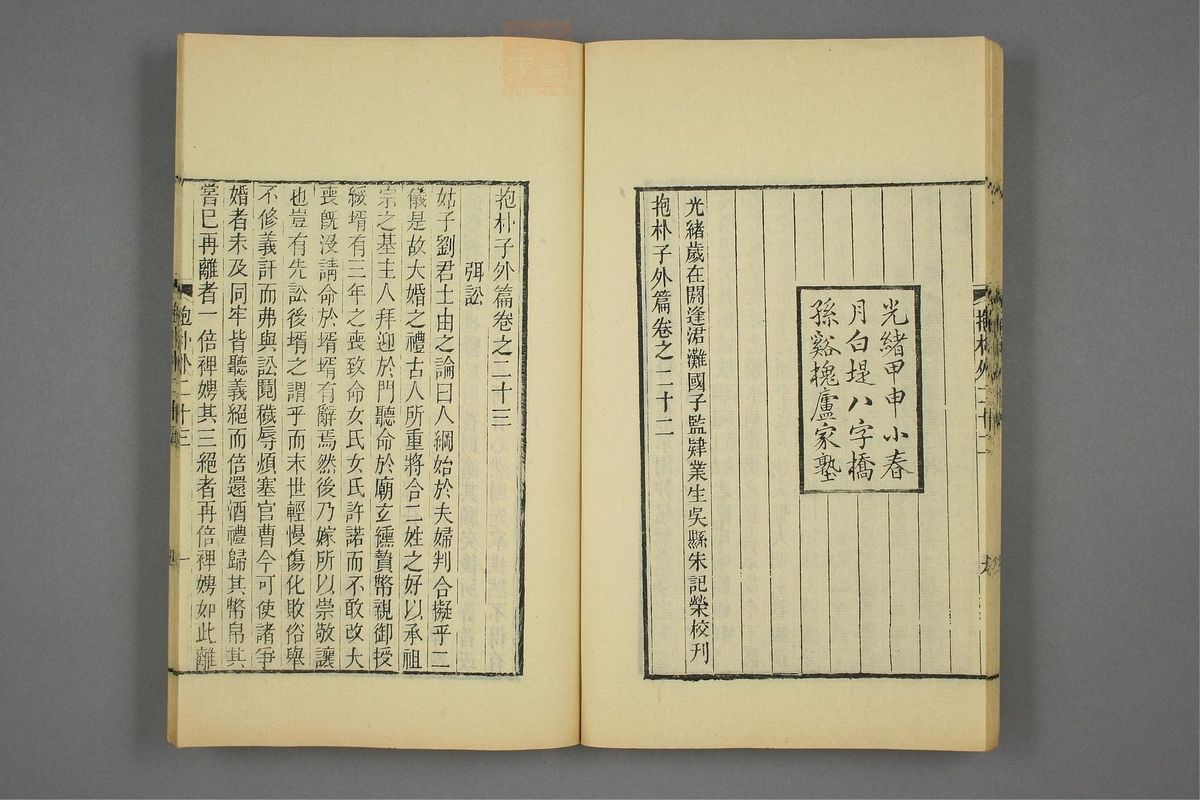 抱朴外二十二
光緒甲申小春
月白堤八字橋
孫谿槐廬家塾
光緒歲在閼逢涒灘國子監肄業生吳縣朱記榮校刊
抱朴子外篇卷之二十二
抱朴子外篇卷之二十三
弭訟
姑子劉君士由之論曰人綱始於夫婦判合擬乎二
儀是故大婚之禮古人所重將合二姓之好以承祖
宗之基主人拜迎於門聽命於廟玄纁贄幣親御授
綏壻有三年之喪致命女氏女氏許諾而不敢改大
喪旣沒請命於壻壻有辭焉然後乃嫁所以崇敬讓
也豈有先訟後壻之謂乎而末世輕慢傷化敗俗舉
不修義計而弗與訟鬩穢辱煩塞官曹今可使諸爭
婚者未及同牢皆聽義絕而倍還酒禮歸其幣帛其
嘗已再離者一倍裨娉其三絕者再倍裨娉如此離
抱朴外二十三
一